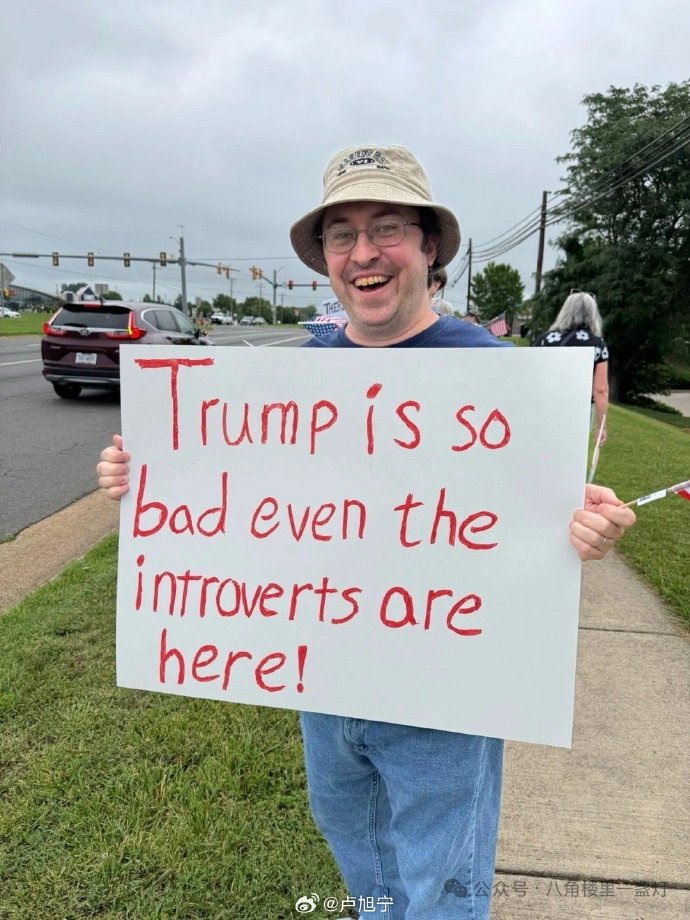 THE
Trump is so
bad even the
introverts are
here!
公众号 · 八角楼里一盏灯
@卢旭宁